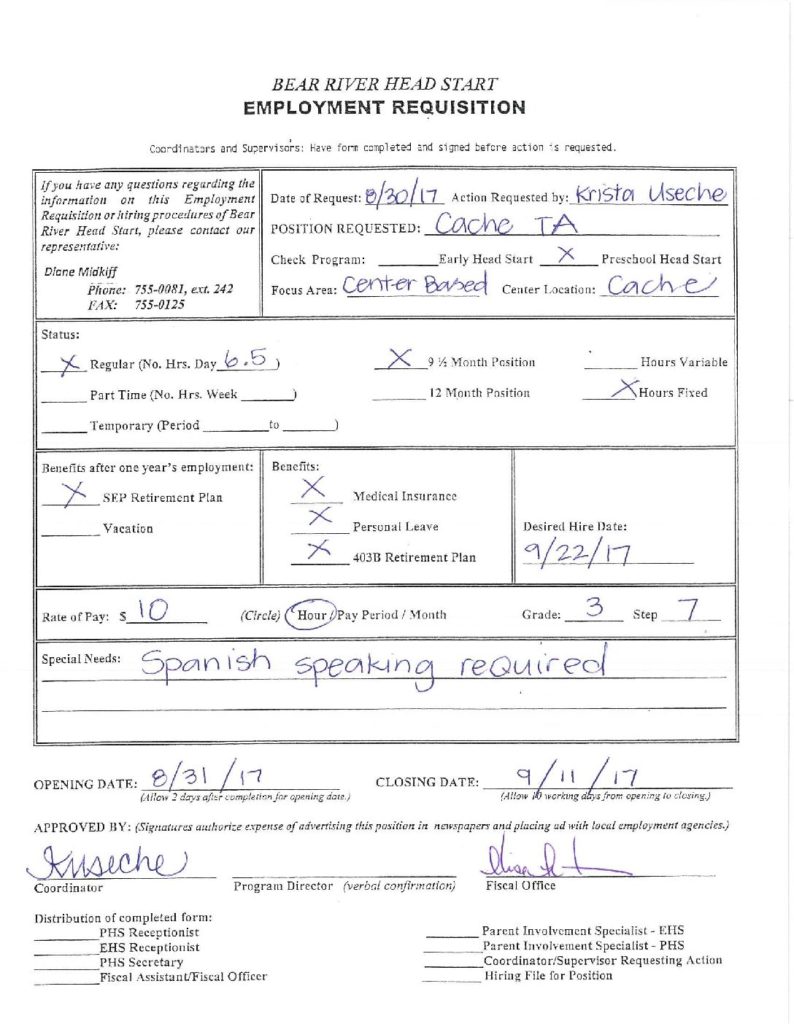 BEAR RIVER HEAD START
EMPLOYMENT REQUISITION
Coordinators and Supervisors: Have form completed and signed before action is requested.
If you have any questions regarding the
information on this Employment
Requisition or hiring procedures of Bear
River Head Start, please contact our
representative:
Diane Midkiff
Phone: 755-0081, ext. 242
FAX: 755-0125
Date of Request: 8/30/17 Action Requested by: Krista Useche
POSITION REQUESTED: Cache TA
Check Program: ______ Early Head Start X Preschool Head Start
Focus Area: Center Based Center Location: Cache
Status:
X Regular (No. Hrs. Day 6.5 ) X 9 ½ Month Position ______ Hours Variable
______ Part Time (No. Hrs. Week ______) ______ 12 Month Position X Hours Fixed
______ Temporary (Period ______ to ______)
Benefits after one year's employment:
X SEP Retirement Plan
______ Vacation
Benefits:
X Medical Insurance
X Personal Leave
X 403B Retirement Plan
Desired Hire Date:
9/22/17
Rate of Pay: $ 10 (Circle) Hour / Pay Period / Month Grade: 3 Step 7
Special Needs: Spanish speaking required
OPENING DATE: 8/31/17 CLOSING DATE: 9/11/17
(Allow 2 days after completion for opening date.) (Allow 10 working days from opening to closing.)
APPROVED BY: (Signatures authorize expense of advertising this position in newspapers and placing ad with local employment agencies.)
KUseche
Coordinator Program Director (verbal confirmation) Fiscal Office
Distribution of completed form:
______ PHS Receptionist
______ EHS Receptionist
______ PHS Secretary
______ Fiscal Assistant/Fiscal Officer
______ Parent Involvement Specialist - EHS
______ Parent Involvement Specialist - PHS
______ Coordinator/Supervisor Requesting Action
______ Hiring File for Position